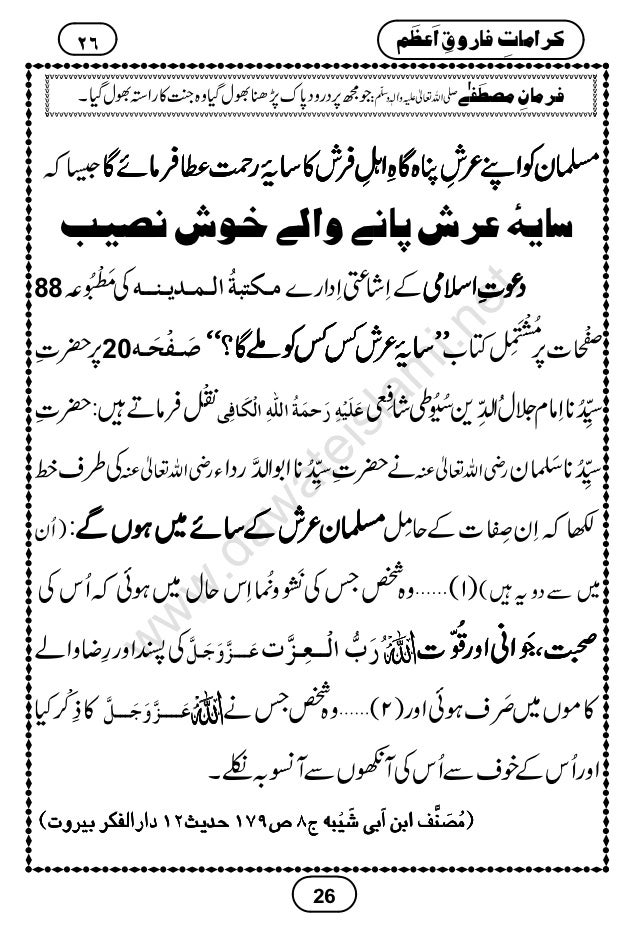 کراماتِ فاروقِ اَعظَم
٢٦
فرمانِ مصطَفٰے صلی اللہ تعالیٰ علیہ والہٖ وسلّم: جو مجھ پر درود پاک پڑھنا بھول گیا وہ جنت کا راستہ بھول گیا۔
مسلمان کو اپنے عرشِ پناہ گاہِ اہلِ فرش کا سایۂ رحمت عطا فرمائے گا جیسا کہ
سایۂ عرش پانے والے خوش نصیب
دعوتِ اسلامی کے اِشاعتی اِدارے مکتبۃُ المدینہ کی مَطْبُوعہ 88
صفْحات پر مُشْتَمِل کتاب ”سایۂ عرش کس کس کو ملے گا؟“ صَفْحَہ 20 پر حضرتِ
سیِّدُنا امام جلالُ الدِّین سُیُوطی شافعی عَلَیْہِ رَحمَۃُ اللہِ الْکَافِی نقْل فرماتے ہیں: حضرتِ
سیِّدُنا سَلمان رضی اللہ تعالیٰ عنہ نے حضرتِ سیِّدُنا ابوالدَّرداء رضی اللہ تعالیٰ عنہ کی طرف خط
لکھا کہ اِن صِفات کے حامِل مسلمان عرش کے سائے میں ہوں گے: (اُن
میں سے دو یہ ہیں) (۱)……وہ شخص جس کی نَشْو ونُما اِس حال میں ہوئی کہ اُس کی
صحبت، جَوانی اور قُوّت اللہُ رَبُّ الْعِزَّت عَزَّوَجَلَّ کی پسند اور رِضا والے
کاموں میں صَرف ہوئی اور (۲)……وہ شخص جس نے اللہ عَزَّوَجَلَّ کا ذِکْر کیا
اور اُس کے خوف سے اُس کی آنکھوں سے آنسو بہ نکلے۔
(مُصَنَّف ابن اَبی شَیْبہ ج۸ ص۱۷۹ حدیث۱۲ دارالفکر بیروت)
26
www.dawateislami.net